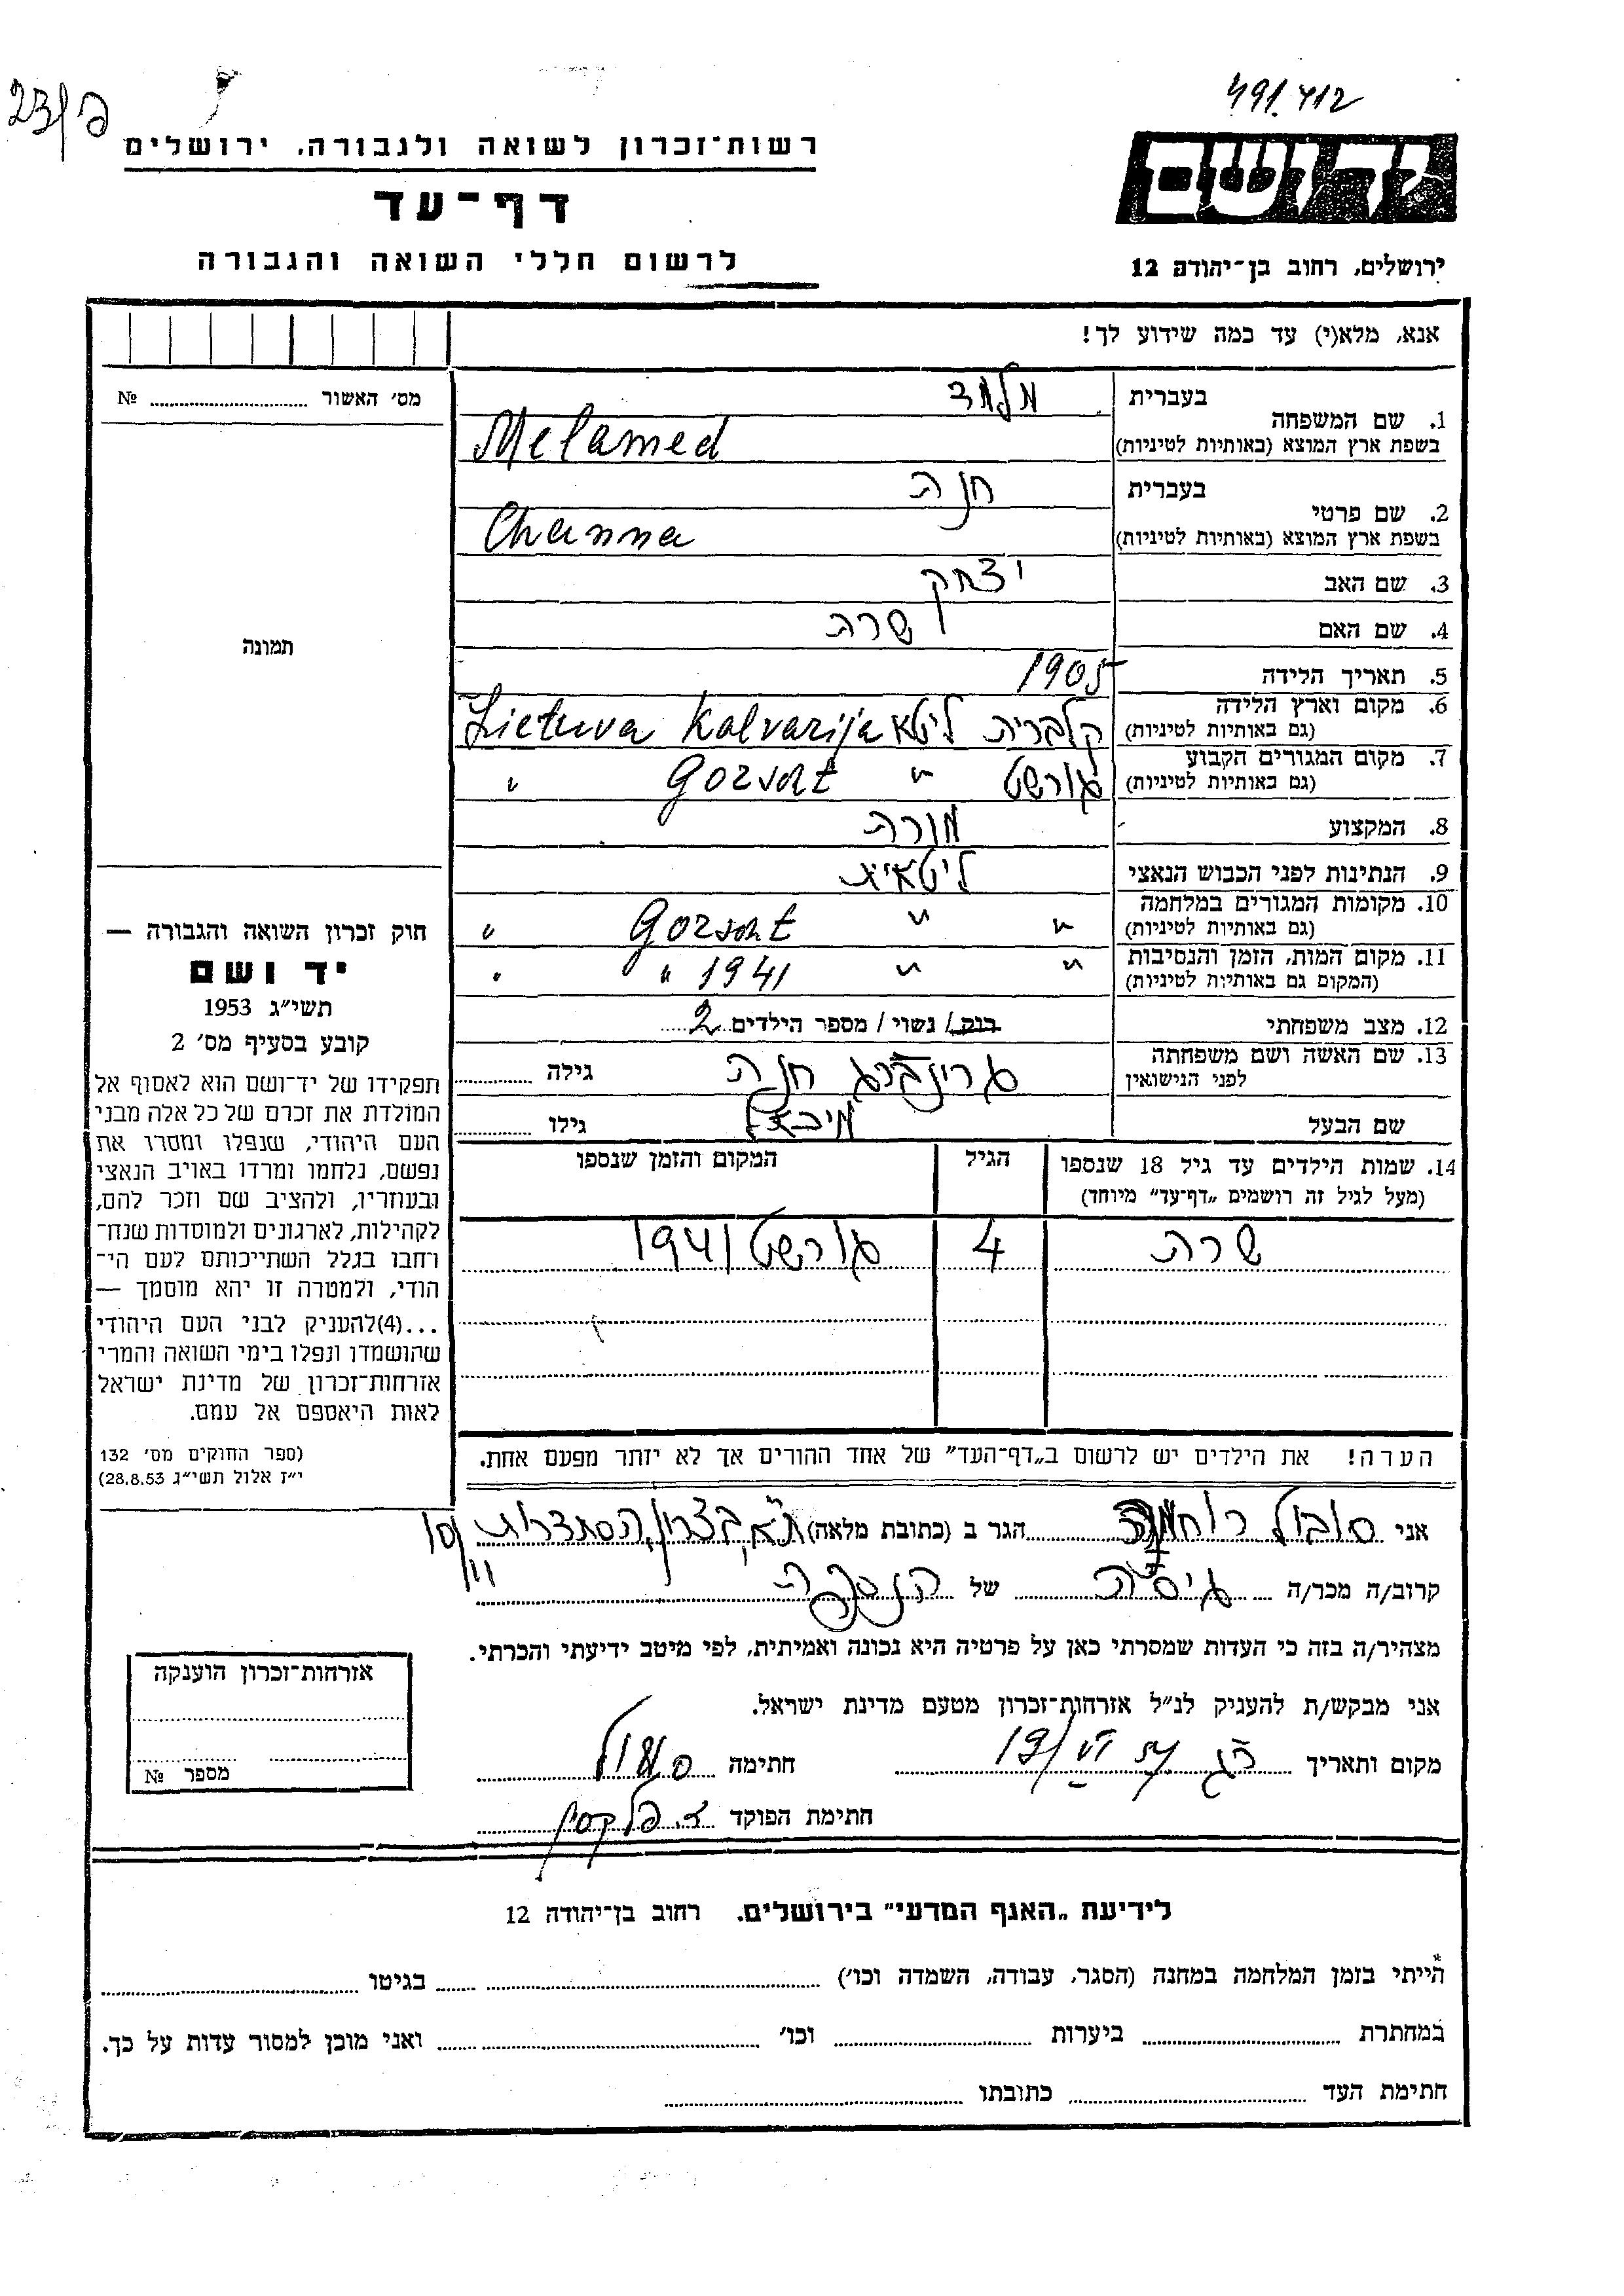 23/פ
491/412
רשות־זכרון לשואה ולגבורה, ירושלים
דף־עד
לרשום חללי השואה והגבורה
ידושם
ירושלים, רחוב בן־יהודה 12
אנא, מלא(י) עד כמה שידוע לך!
מס׳ האשור № 
1. שם המשפחה בעברית מלמד
בשפת ארץ המוצא (באותיות לטיניות) Melamed
2. שם פרטי בעברית חנה
בשפת ארץ המוצא (באותיות לטיניות) Channa
3. שם האב יצחק
4. שם האם שרה
5. תאריך הלידה 1905
6. מקום וארץ הלידה (גם באותיות לטיניות) קלבריה ליטא Lietuva Kalvarija
7. מקום המגורים הקבוע (גם באותיות לטיניות) גורשט " Gorscht "
8. המקצוע מורה
9. הנתינות לפני הכבוש הנאצי ליטאית
10. מקומות המגורים במלחמה (גם באותיות לטיניות) " " Gorscht "
11. מקום המות, הזמן והנסיבות (המקום גם באותיות לטיניות) " " 1941 " "
12. מצב משפחתי רוק/ נשוי/ מספר הילדים 2
13. שם האשה ושם משפחתה לפני הנישואין גרינברג חנה גילה
שם הבעל גילו
14. שמות הילדים עד גיל 18 שנספו (מעל לגיל זה רושמים „דף־עד” מיוחד) הגיל המקום והזמן שנספו
שרה 4 גורשט 1941
הערה! את הילדים יש לרשום ב„דף־העד” של אחד ההורים אך לא יותר מפעם אחת.
תמונה
חוק זכרון השואה והגבורה —
יד ושם
תשי״ג 1953
קובע בסעיף מס׳ 2
תפקידו של יד־ושם הוא לאסוף אל
המולדת את זכרם של כל אלה מבני
העם היהודי, שנפלו ומסרו את
נפשם, נלחמו ומרדו באויב הנאצי
ובעוזריו, ולהציב שם וזכר להם,
לקהילות, לארגונים ולמוסדות שנח־
רחבו בגלל השתייכותם לעם הי־
הודי, ולמטרה זו יהא מוסמך —
...(4)להעניק לבני העם היהודי
שהושמדו ונפלו בימי השואה והמרי
אזרחות־זכרון של מדינת ישראל
לאות היאספם אל עמם.
(ספר החוקים מס׳ 132
י״ז אלול תשי״ג 28.8.53)
אני סובול הגר ב (כתובת מלאה) ת״א, בצרון, הסתדרות 10/11
קרוב/ה מכר/ה גיסה של הנספה
מצהיר/ה בזה כי העדות שמסרתי כאן על פרטיה היא נכונה ואמיתית, לפי מיטב ידיעתי והכרתי.
אני מבקש/ת להעניק לנ״ל אזרחות־זכרון מטעם מדינת ישראל.
מקום ותאריך חתימה
חתימת הפוקד
אזרחות־זכרון הוענקה
מספר №
לידיעת „האגף המדעי” בירושלים. רחוב בן־יהודה 12
הייתי בזמן המלחמה במחנה (הסגר, עבודה, השמדה וכו׳) בגיטו
במחתרת ביערות וכו׳ ואני מוכן למסור עדות על כך.
חתימת העד כתובתו